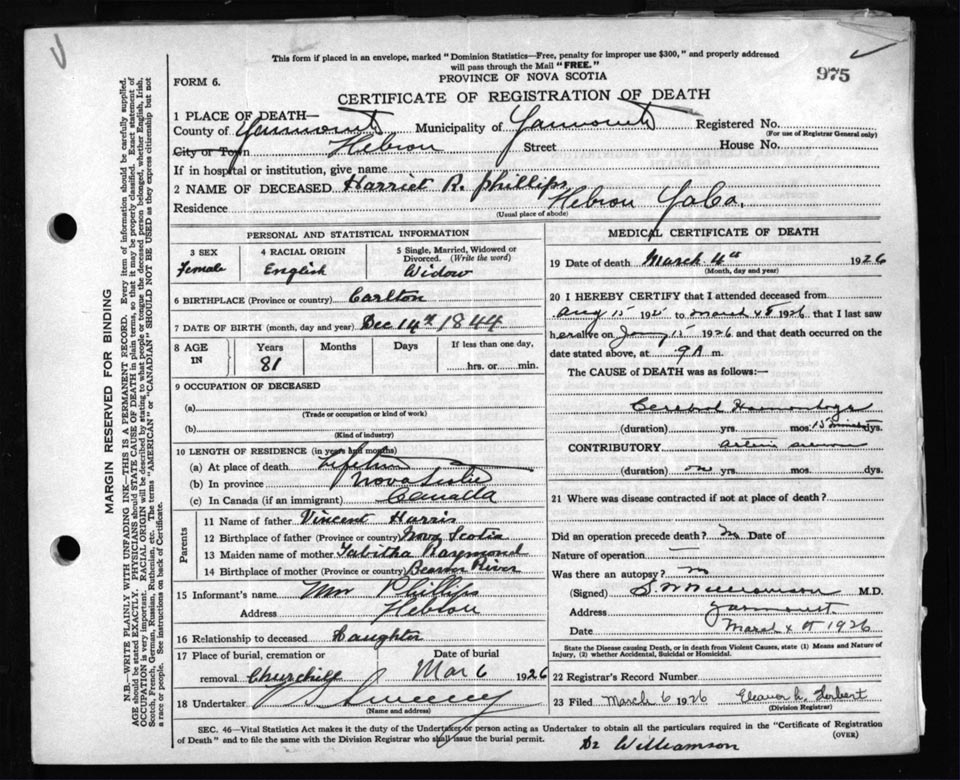 This form if placed in an envelope, marked "Dominion Statistics—Free, penalty for improper use $300," and properly addressed
will pass through the Mail "FREE."
975
FORM 6.
PROVINCE OF NOVA SCOTIA
CERTIFICATE OF REGISTRATION OF DEATH
1 PLACE OF DEATH—
County of Yarmouth Municipality of Yarmouth Registered No.
(For use of Registrar General only)
City or Town Hebron Street House No.
If in hospital or institution, give name
2 NAME OF DECEASED Harriet R. Phillips
Residence Hebron Ya Co.
(Usual place of abode)
PERSONAL AND STATISTICAL INFORMATION
3 SEX
Female
4 RACIAL ORIGIN
English
5 Single, Married, Widowed or
Divorced. (Write the word)
Widow
6 BIRTHPLACE (Province or country) Carlton
7 DATE OF BIRTH (month, day and year) Dec 14th 1844
8 AGE
IN
Years
81
Months
Days
If less than one day,
hrs. or min.
9 OCCUPATION OF DECEASED
(a)
(Trade or occupation or kind of work)
(b)
(Kind of industry)
10 LENGTH OF RESIDENCE (in years and months)
(a) At place of death
(b) In province Nova Scotia
(c) In Canada (if an immigrant) Canada
Parents
11 Name of father Vincent Harris
12 Birthplace of father (Province or country) Nova Scotia
13 Maiden name of mother Tabitha Raymond
14 Birthplace of mother (Province or country) Beaver River
15 Informant's name Phillips
Address Hebron
16 Relationship to deceased Daughter
17 Place of burial, cremation or
removal
Date of burial
Mar 6 1926
18 Undertaker Sweeney
(Name and address)
MEDICAL CERTIFICATE OF DEATH
19 Date of death March 4th 1926
(Month, day and year)
20 I HEREBY CERTIFY that I attended deceased from
Aug 15 192 to March 4th 1926, that I last saw
her alive on Jany 15 1926 and that death occurred on the
date stated above, at 9 A m.
The CAUSE of DEATH was as follows:—
(duration) yrs. mos. 15 dys.
CONTRIBUTORY
(duration) yrs. mos. dys.
21 Where was disease contracted if not at place of death?
Did an operation precede death? no Date of
Nature of operation —
Was there an autopsy? no
(Signed) Williamson M.D.
Address Yarmouth
Date March 4th 1926
State the Disease causing Death, or in death from Violent Causes, state (1) Means and Nature of
Injury, (2) whether Accidental, Suicidal or Homicidal.
22 Registrar's Record Number
23 Filed March 6 1926 Eleanor
(Division Registrar)
SEC. 46—Vital Statistics Act makes it the duty of the Undertaker or person acting as Undertaker to obtain all the particulars required in the "Certificate of Registration
of Death" and to file the same with the Division Registrar who shall issue the burial permit.
(OVER)
Dr Williamson
MARGIN RESERVED FOR BINDING
N.B.—WRITE PLAINLY WITH UNFADING INK—THIS IS A PERMANENT RECORD. Every item of information should be carefully supplied.
AGE should be stated EXACTLY. PHYSICIANS should STATE CAUSE OF DEATH in plain terms, so that it may be properly classified. Exact statement of
OCCUPATION is very important. RACIAL ORIGIN will be described by stating to what people or tongue the deceased person belonged, whether English, Irish,
Scotch, French, German, Russian, Ruthenian, etc. The terms "AMERICAN" or "CANADIAN" SHOULD NOT BE USED as they express citizenship but not
a race or people. See instructions on back of Certificate.